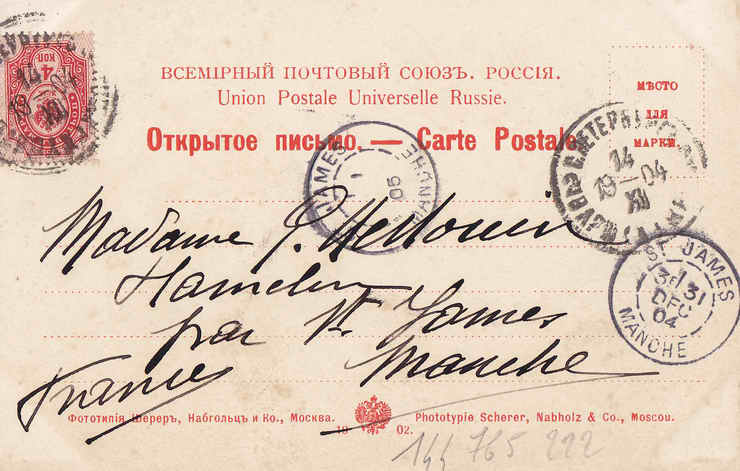 4
КОП
14
04
ВСЕМІРНЫЙ ПОЧТОВЫЙ СОЮЗЪ. РОССІЯ.
Union Postale Universelle Russie.
МѢСТО
ДЛЯ
МАРКИ.
Открытое письмо. — Carte Postale.
JAMES
05
MANCHE
14
19—04
XII
Madame P. Hellouin
Hamelin
par St James
Manche
France
ST JAMES
31
DEC
04
MANCHE
Фототипія Шереръ, Набгольцъ и Ко., Москва.
Phototypie Scherer, Nabholz & Co., Moscou.
19 02.
144 765 222